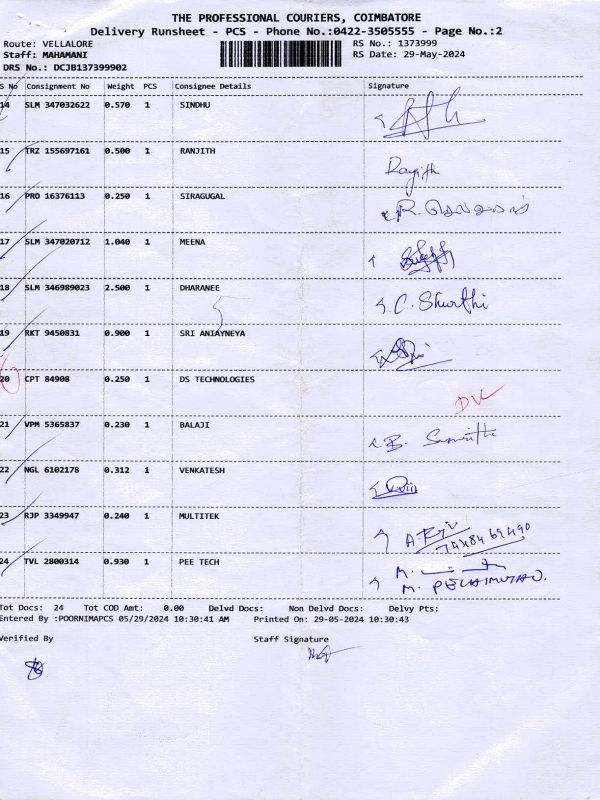 THE PROFESSIONAL COURIERS, COIMBATORE
Delivery Runsheet - PCS - Phone No.:0422-3505555 - Page No.:2
Route: VELLALORE RS No.: 1373999
Staff: MAHAMANI RS Date: 29-May-2024
DRS No.: DCJB137399902
S No Consignment No Weight PCS Consignee Details Signature
14 SLM 347032622 0.570 1 SINDHU
15 TRZ 155697161 0.500 1 RANJITH Ranjith
16 PRO 16376113 0.250 1 SIRAGUGAL
17 SLM 347020712 1.040 1 MEENA
18 SLM 346989023 2.500 1 DHARANEE C. Shurthi
5
19 RKT 9450831 0.900 1 SRI ANIAYNEYA
20 CPT 84908 0.250 1 DS TECHNOLOGIES
21 VPM 5365837 0.230 1 BALAJI B.
22 NGL 6102178 0.312 1 VENKATESH
23 RJP 3349947 0.240 1 MULTITEK
24 TVL 2800314 0.930 1 PEE TECH M.
Tot Docs: 24 Tot COD Amt: 0.00 Delvd Docs: Non Delvd Docs: Delvy Pts:
Entered By :POORNIMAPCS 05/29/2024 10:30:41 AM Printed On: 29-05-2024 10:30:43
Verified By Staff Signature